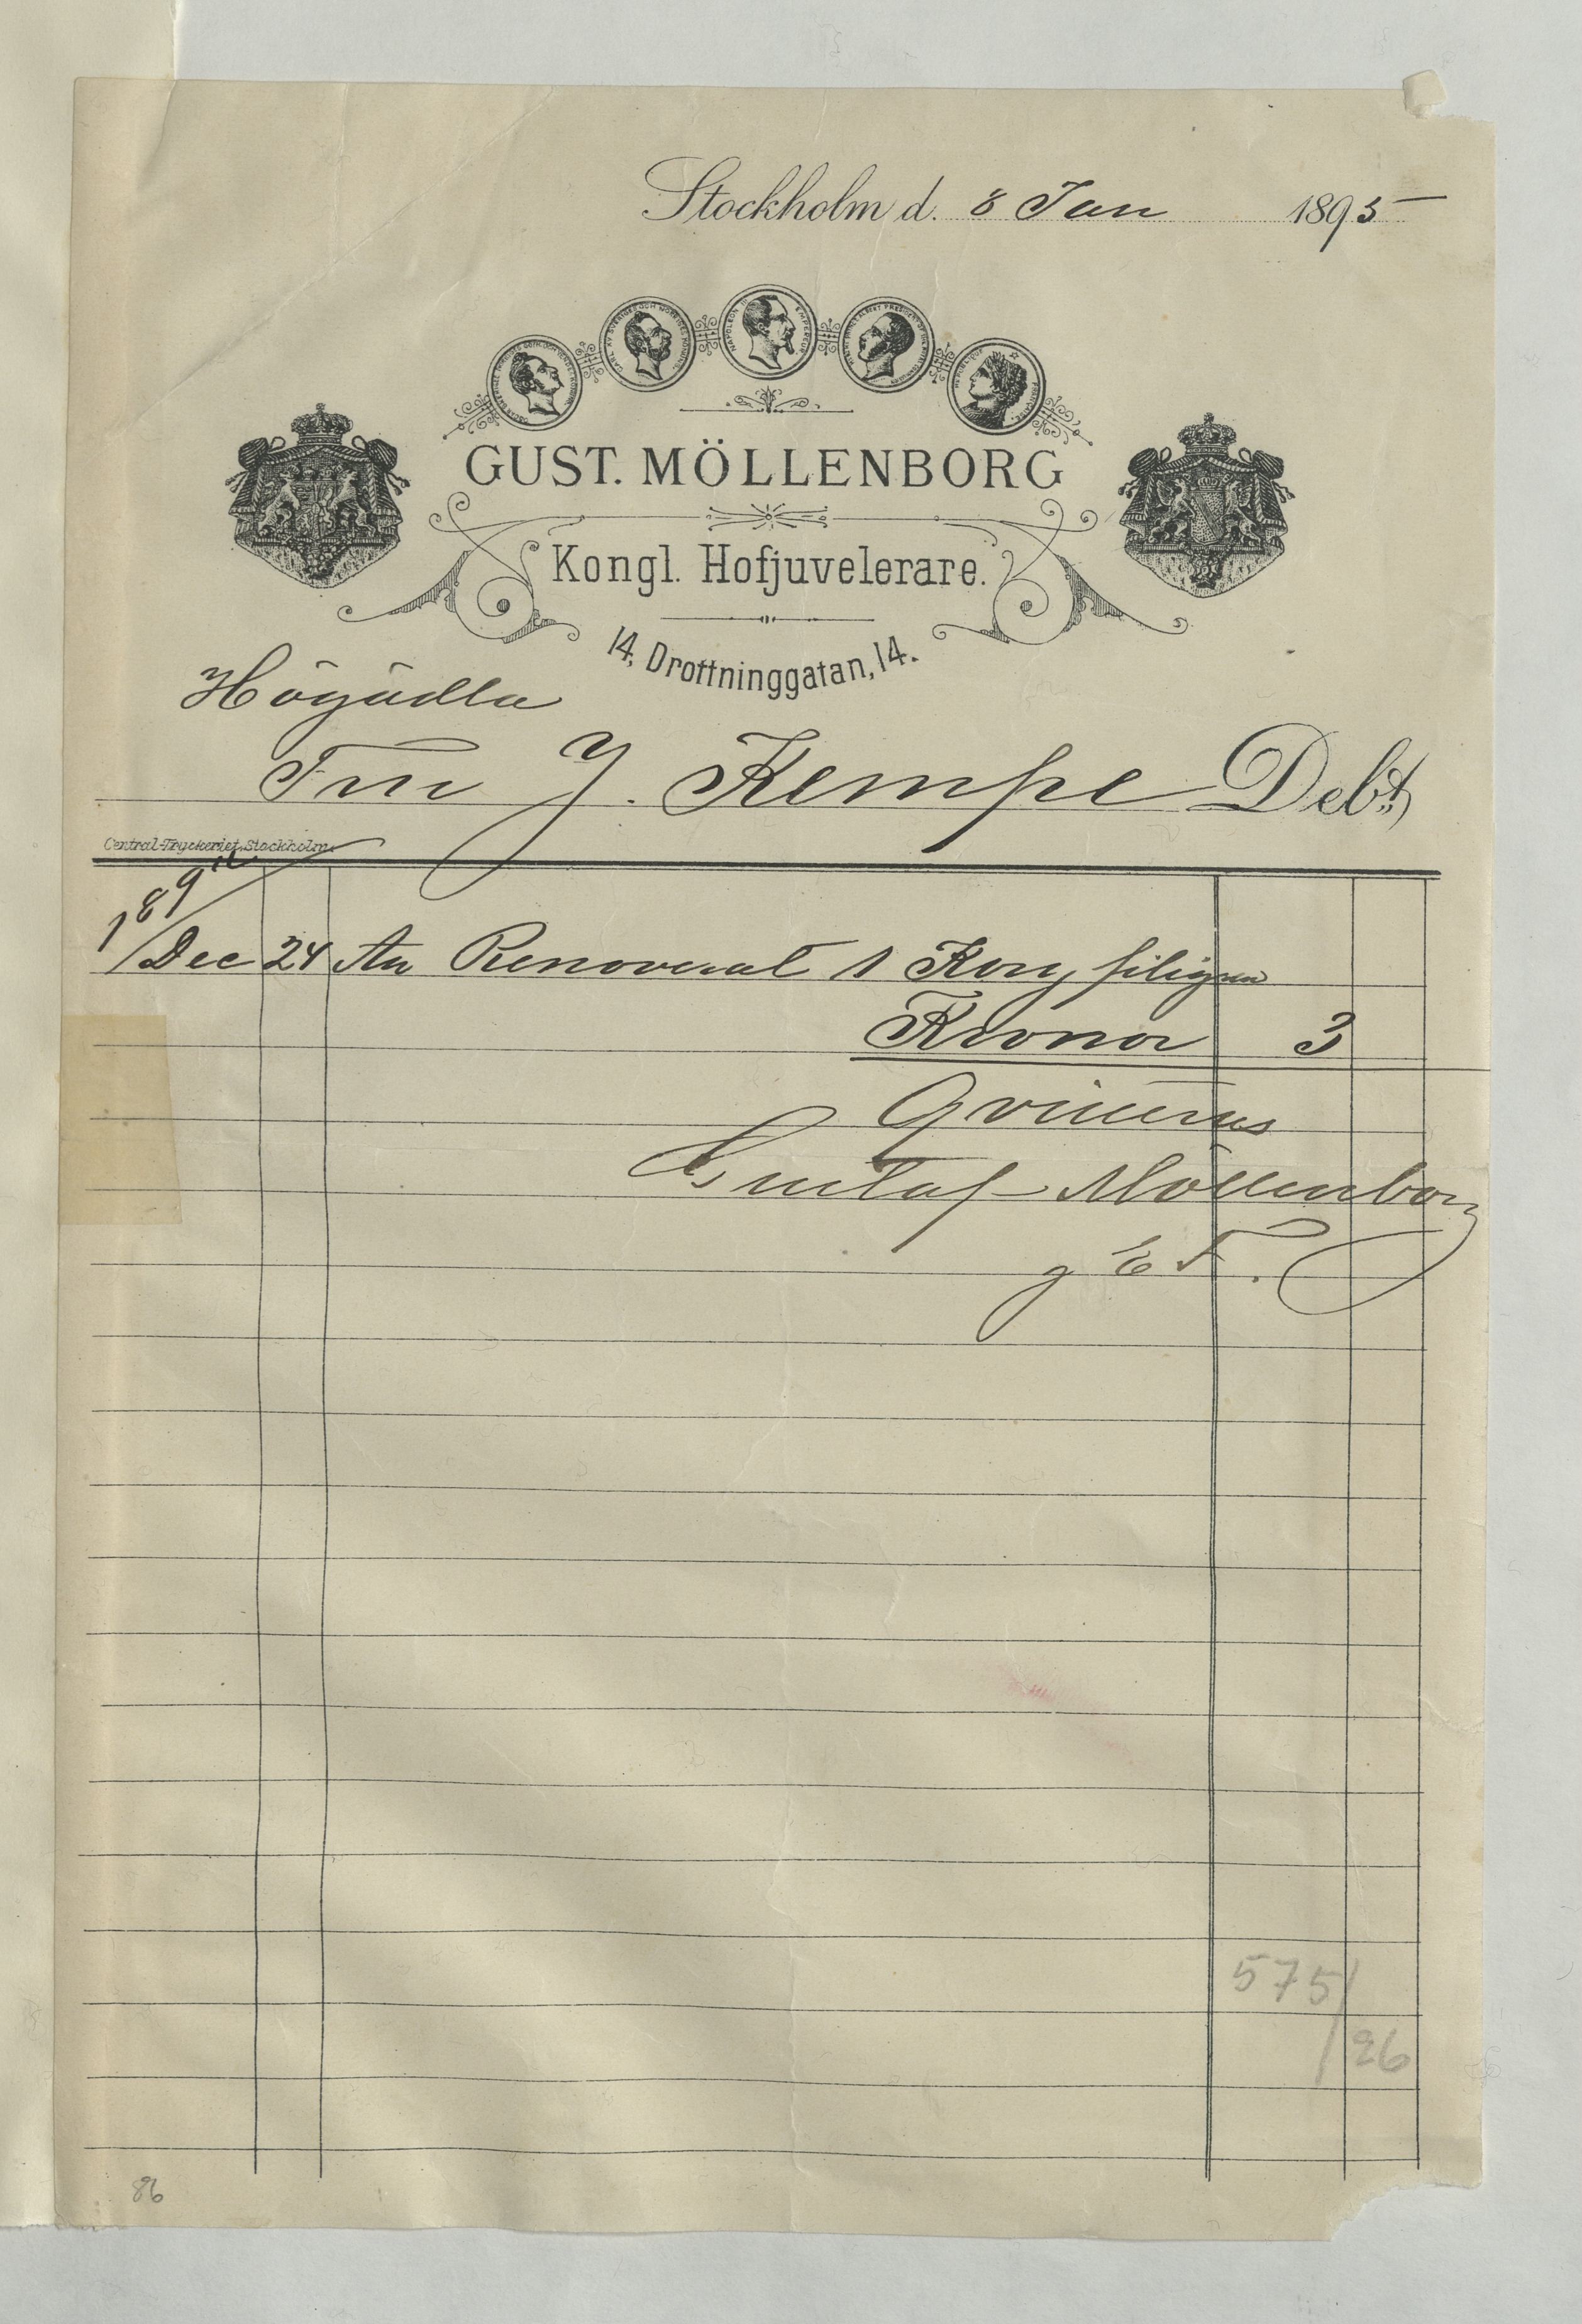 Stockholm d. 8 Jan 1895
GUST. MÖLLENBORG
Kongl. Hofjuvelerare.
14, Drottninggatan, 14.
Högädla
Fru J. Kempe Debt
Central-Tryckeriet, Stockholm.
189
Dec 24 An Renoverat 1 Korg filigran
Kronor 3
Qvitteras
Gustaf Möllenborg
g E F.
575/
26
86